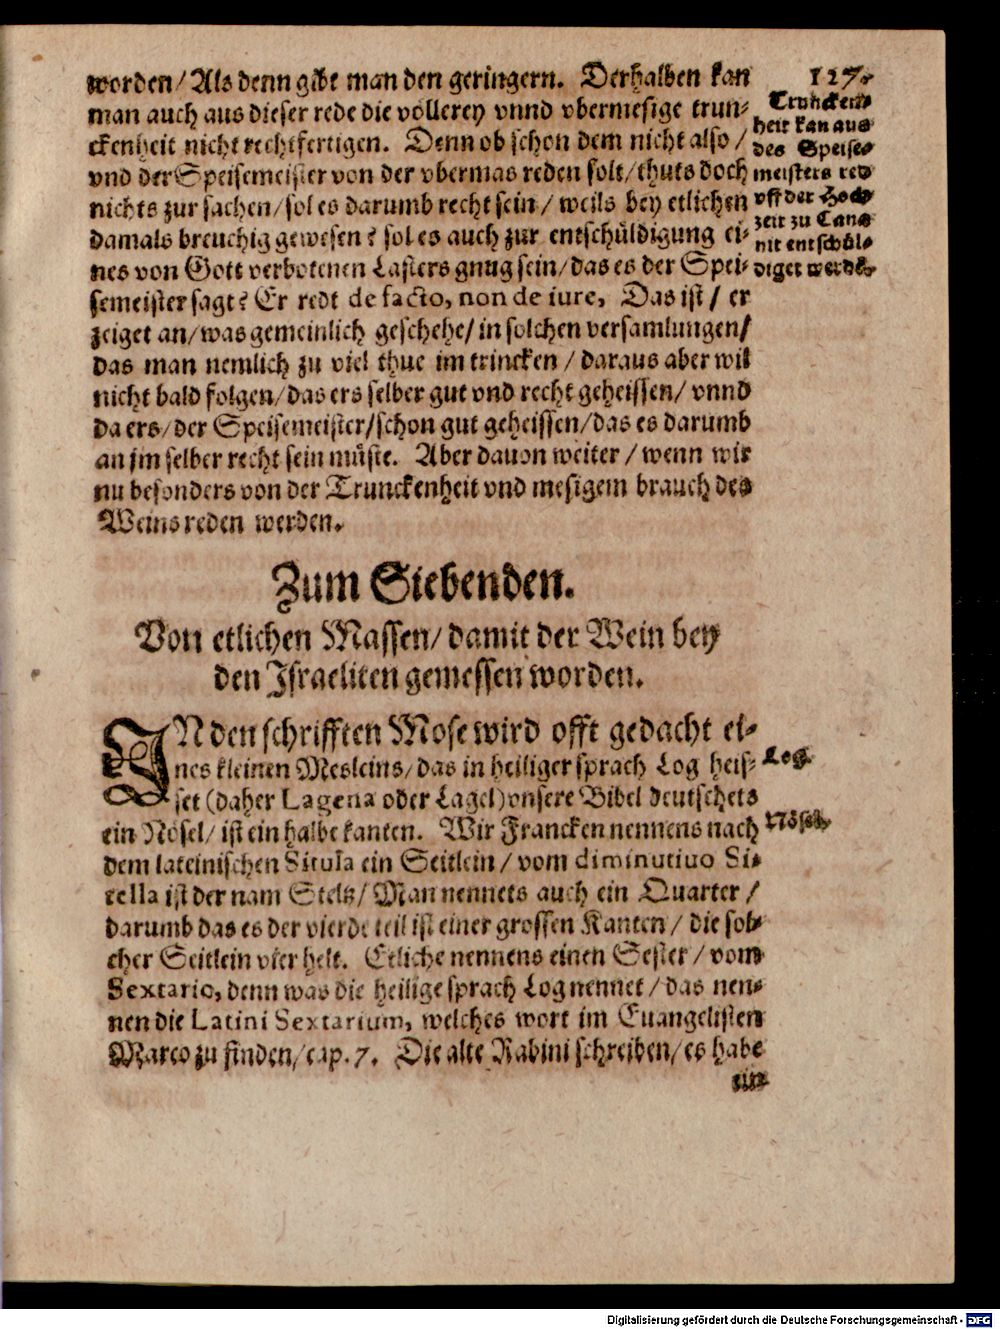 127.
worden/Als denn gibt man den geringern. Derhalben kan
man auch aus dieser rede die vollerey vnnd vbermesige trun-
ckenheit nicht rechtfertigen. Denn ob schon dem nicht also/
vnd der Speisemeister von der vbermas reden solt/thuts doch
nichts zur sachen/sol es darumb recht sein/ weils bey etlichen
damals breuchig gewesen? sol es auch zur entschüldigung ei-
nes von Gott verbotenen Lasters gnug sein/das es der Spei-
semeister sagt? Er redt de facto, non de iure, Das ist/ er
zeiget an/was gemeinlich geschehe/in solchen versamlungen/
das man nemlich zu viel thue im trincken/daraus aber wil
nicht bald folgen/das ers selber gut vnd recht geheissen/ vnnd
da ers/der Speisemeister/schon gut geheissen/das es darumb
an jm selber recht sein müste. Aber dauon weiter/wenn wir
nu besonders von der Trunckenheit vnd mesigem brauch des
Weins reden werden.
Truncken-
heit kan aus
des Speise-
meisters red
vff der Hoch-
zeit zu Cana
nit entschül-
diget werdē.
Zum Siebenden.
Von etlichen Massen/damit der Wein bey
den Israeliten gemessen worden.
IN den schrifften Mose wird offt gedacht ei-
nes kleinen Mesleins/das in heiliger sprach Log heis-
set (daher Lagena oder Lagel) vnsere Bibel deutschets
ein Nösel/ ist ein halbe kanten. Wir Francken nennens nach
dem lateinischen Situla ein Seitlein/ vom diminutiuo Si-
tella ist der nam Steltz/ Man nennets auch ein Quarter/
darumb das es der vierde teil ist einer grossen Kanten/ die sol-
cher Seitlein vier helt. Etliche nennens einen Sester/ vom
Sextario, denn was die heilige sprach Log nennet/das nen-
nen die Latini Sextarium, welches wort im Euangelisten
Marco zu finden/cap. 7. Die alte Rabini schreiben/es habe
Log.
Nösel.
Digitalisierung gefördert durch die Deutsche Forschungsgemeinschaft - DFG